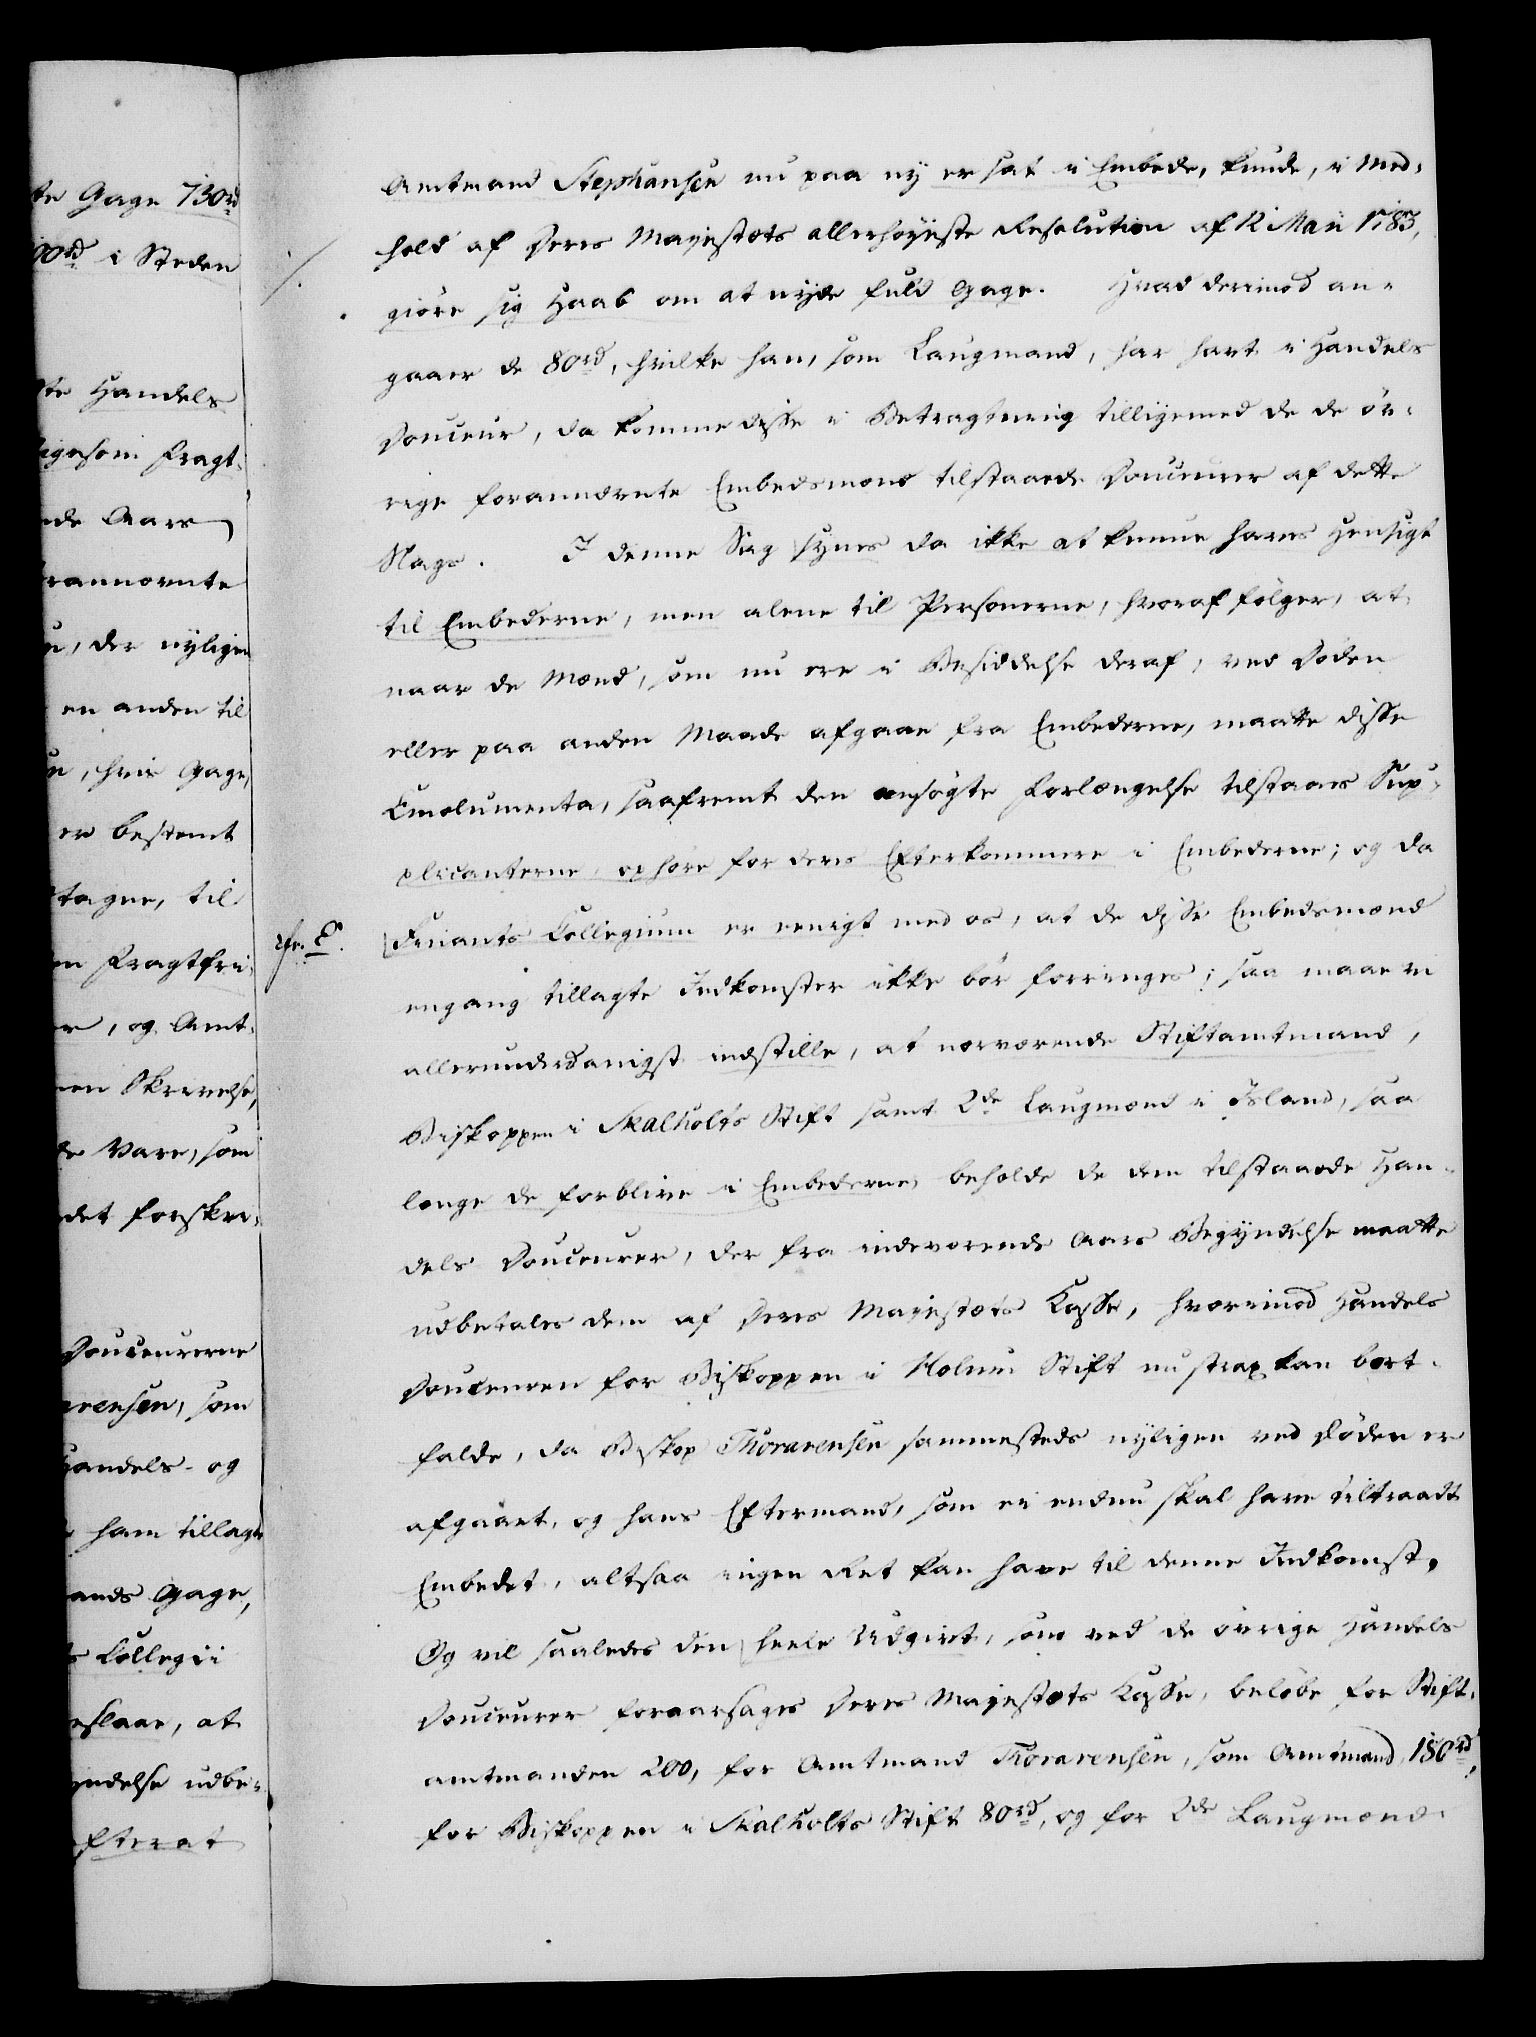 te Gage 730rd
00rd i Steden
te Handels
igesom Fragt-
nde Aars
rannevnte
n, der nyligen
en anden til
n, hvis Gage,
er bestemt
tagne, til
en Fragtfri-
er, og Amt-
nen Skrivelse,
de Vare, som
det forskre-
Douceurerne
arensen, som
Handels- og
ham tillagte
ands Gage,
s Collegii
eslaae, at
yndelse udbe-
efterat
Amtmand Stephansen nu paa ny er sat i Embede, kunde, i Med-
hold af Deres Majestæts allerhøyeste Resolution af 12 Maii 1783,
giøre sig Haab om at nyde fuld Gage. Hvad derimod an-
gaaer de 80rd, hvilke han, som Laugmand, har havt i Handels
Douceur, da komme disse i Betragtning tilligemed de de øv-
rige forannævnte Embedsmænd tilstaaede Douceurer af dette
Slags. I denne Sag synes da ikke at kunne haves Hensigt
til Embederne, men alene til Personerne, hvoraf følger, at
naar de Mænd, som nu ere i Besiddelse deraf, ved Døden
eller paa anden Maade afgaae fra Embederne, maatte disse
Emolumenta, saafremt den ansøgte Forlængelse tilstaaes Sup-
plicanterne, ophøre for deres Efterkommere i Embederne; og da
cfr. E. Finants Collegium er eenigt med os, at de disse Embedsmænd
engang tillagte Indkomster ikke bør forringes; saa maae vi
allerunderdanigst indstille, at nærværende Stiftamtmand,
Biskoppen i Skalholts Stift samt 2de Laugmænd i Island, saa
længe de forblive i Embederne, beholde de dem tilstaaede Han-
dels Douceurer, der fra indeværende Aars Begyndelse maatte
udbetales dem af Deres Majestæts Kasse, hvorimod Handels
Douceuren for Biskoppen i Holum Stift nu strax kan bort-
falde, da Biskop Thorarensen sammesteds nyligen ved Døden er
afgaaet, og hans Eftermand, som ei endnu skal have tiltraadt
Embedet, altsaa ingen Ret kan have til denne Indkomst.
Og vil saaledes den heele Udgivt, som ved de øvrige Handels
Douceurer foraarsages Deres Majestæts Kasse, beløbe for Stift-
amtmanden 200, for Amtmand Thorarensen, som Amtmand, 150rd,
for Biskoppen i Skalholts Stift 80rd, og for 2de Laugmænd